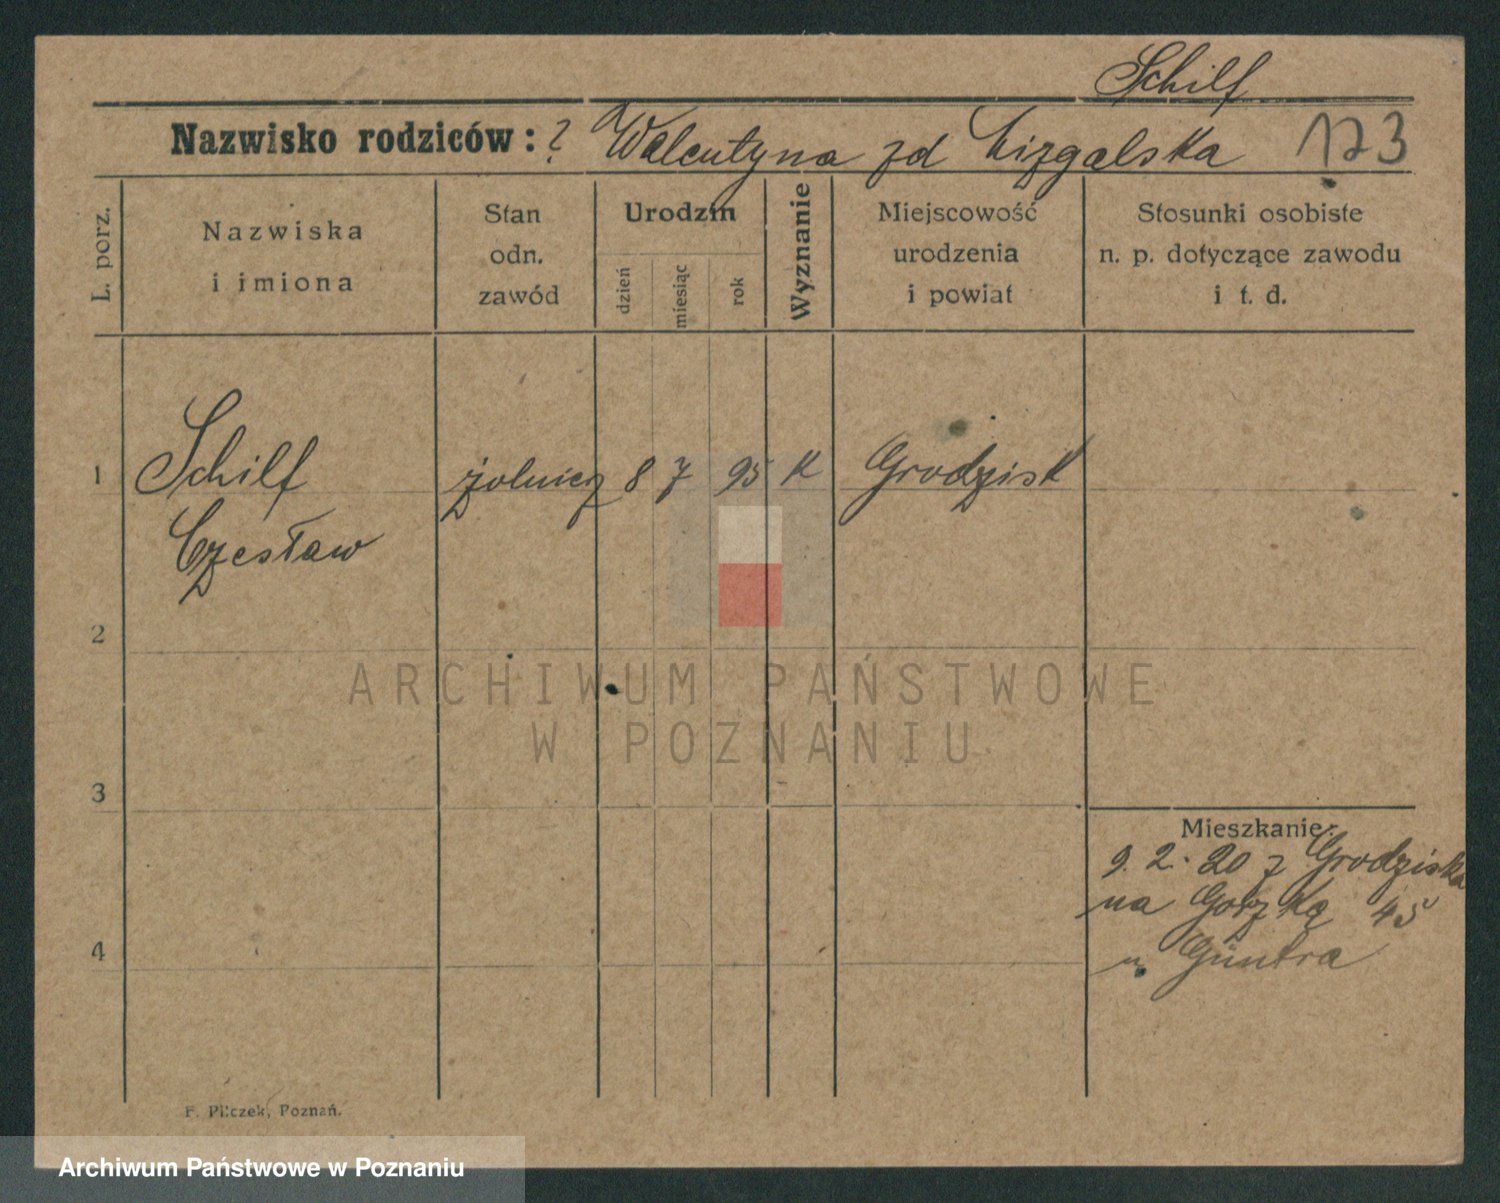 Schilf
Nazwisko rodziców: ? Walentyna zd Lizgalska 173
L. porz.
Nazwiska
i imiona
Stan
odn.
zawód
Urodzin
dzień
miesiąc
rok
Wyznanie
Miejscowość
urodzenia
i powiat
Stosunki osobiste
n. p. dotyczące zawodu
i t. d.
1 Schilf żolnierz 8 7 95 K Grodzisk
Czesław
2
ARCHIWUM PAŃSTWOWE
W POZNANIU
3
Mieszkanie:
9. 2. 20 z Grodziska
na Gorzką 45
u Güntra
4
F. Pilczek, Poznań.
Archiwum Państwowe w Poznaniu